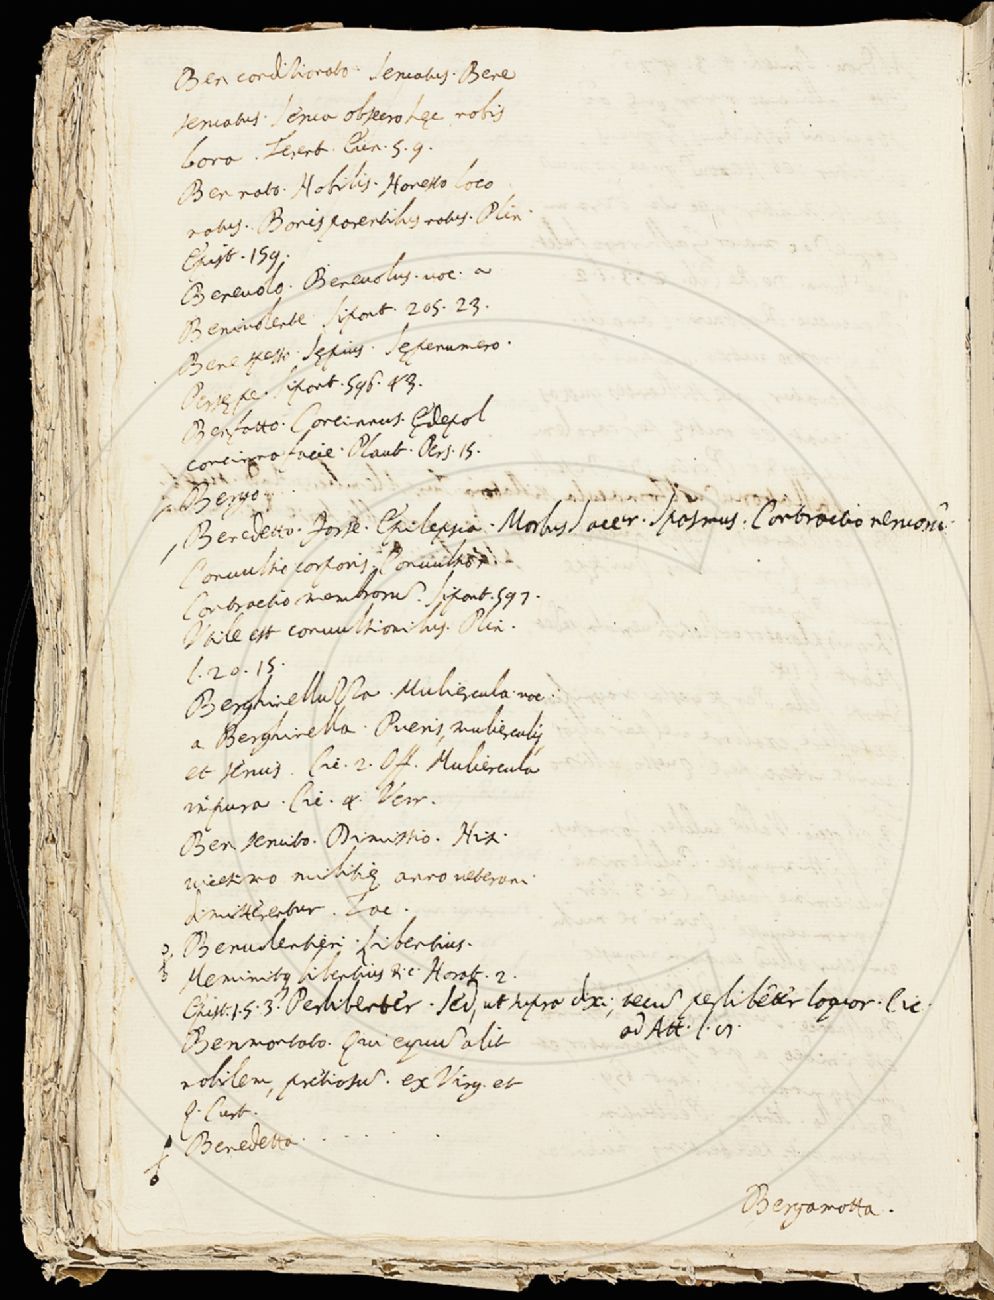 Ben conditionato. Senatus. Bene
senatus. obsecro hęc nobis
bona. Terent. Eun. 5. 9.
Ben nato. Nobilis. Honesto loco
natus. Bonis parentibus natus. Plin.
Epist. 159.
Beneuolo. Beneuolus. uoc. a
Beniuolente Sipont. 205. 23.
Bene spesso. Sępius. Sępenumero.
Persępe. Sipont. 596. 43.
Benfatto. Concinnus. Ędepol
concinna facie. Plaut. Pers. 15.
Benedetto. Forse. Epilepsia. Morbus Sacer. Spasmus. Contractio neruorū.
Conuulsio corporis. Conuulsio.
Contractio membrorū. Sipont. 597.
Vtile est conuulsionibus. Plin.
l. 20. 15.
Berghinelluzza. Muliercula. uoc.
a Berghinella. Pueris, mulierculis
et senus. Cic. 2. Off. Muliercula
impura. Cic. 4. Verr.
Ben seruito. Dimissio. Hix.
uicesimo militię anno ueterani
dimitterentur. Tac.
Benuolentieri. Libentius.
Meminitq libentius &c. Horat. 2.
Epist. 1. 5. 3. Perlibenter. Sed, ut supra dxi, tecū perlibēter loquor. Cic.
ad Att. l.
Benmontato. Qui equū alit
nobilem, pretiosū. ex Virg. et
Q. Curt.
Benedetta. . . . . .
Bergamotta.